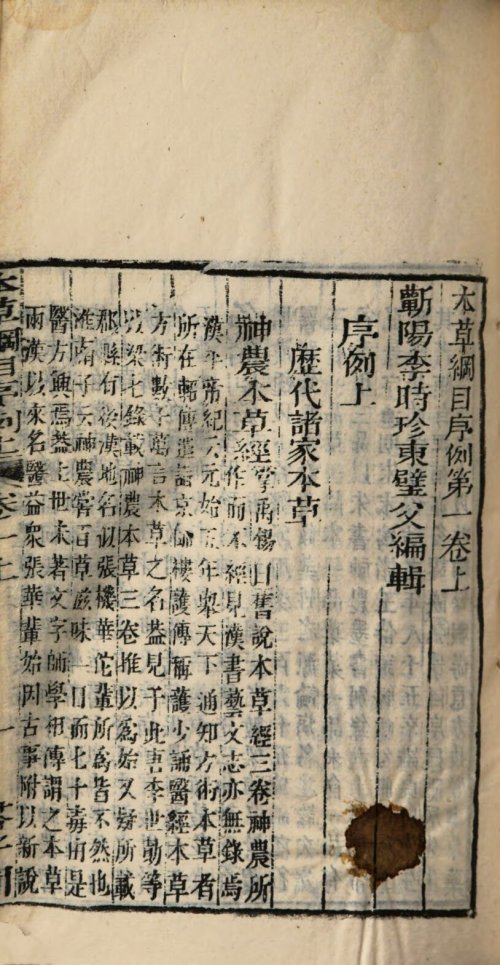 本草綱目序例第一卷上
蘄陽李時珍東璧父編輯
序例上
歷代諸家本草
神農本草經掌禹錫曰舊說本草經三卷神農所
作而不經見漢書藝文志亦無錄焉
漢平帝紀云元始五年舉天下通知方術本草者
所在軺傳遣詣京師樓護傳稱護少誦醫經本草
方術數十萬言本草之名蓋見于此唐李世勣等
以梁七錄載神農本草三卷推以為始又疑所載
郡縣有後漢地名似張機華佗輩所為皆不然也
淮南子云神農嘗百草滋味一日而七十毒由是
醫方興焉蓋上世未著文字師學相傳謂之本草
兩漢以來名醫益眾張華輩始因古事附以新說
本草綱目序例上 卷一上 一